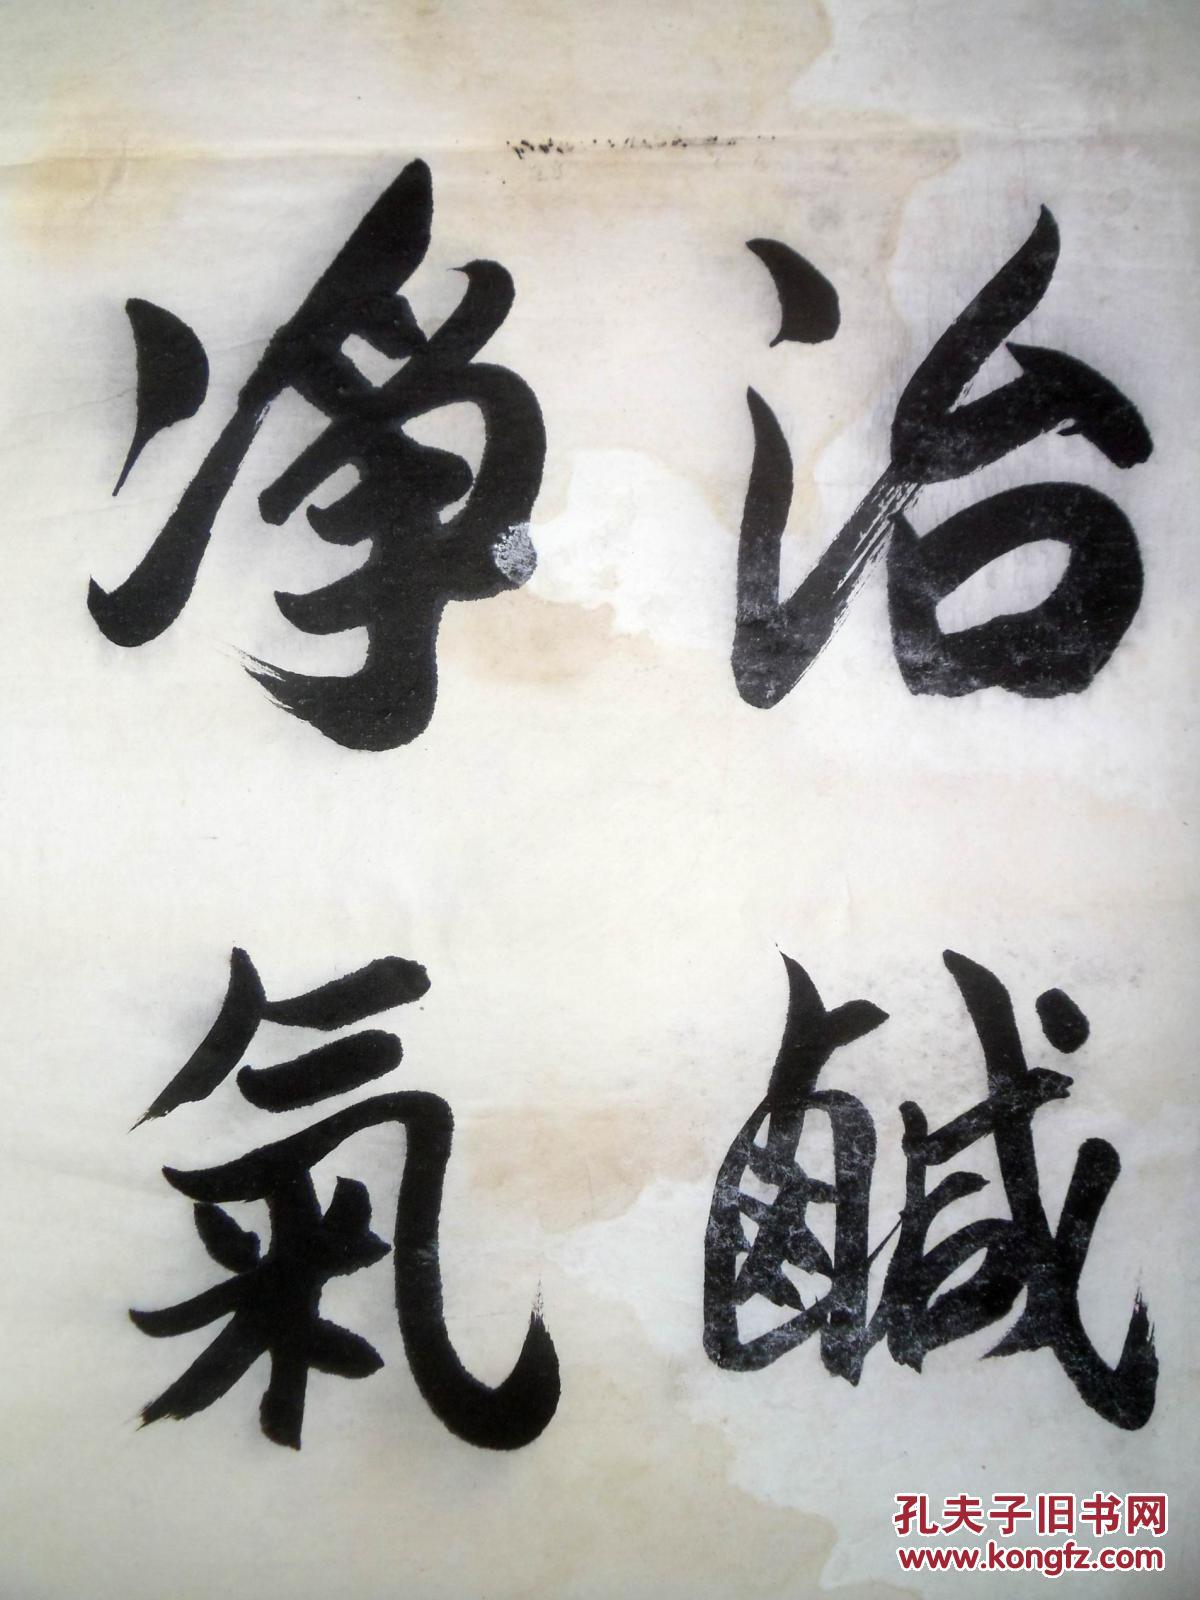 治鹹
淨氣
孔夫子旧书网
www.kongfz.com